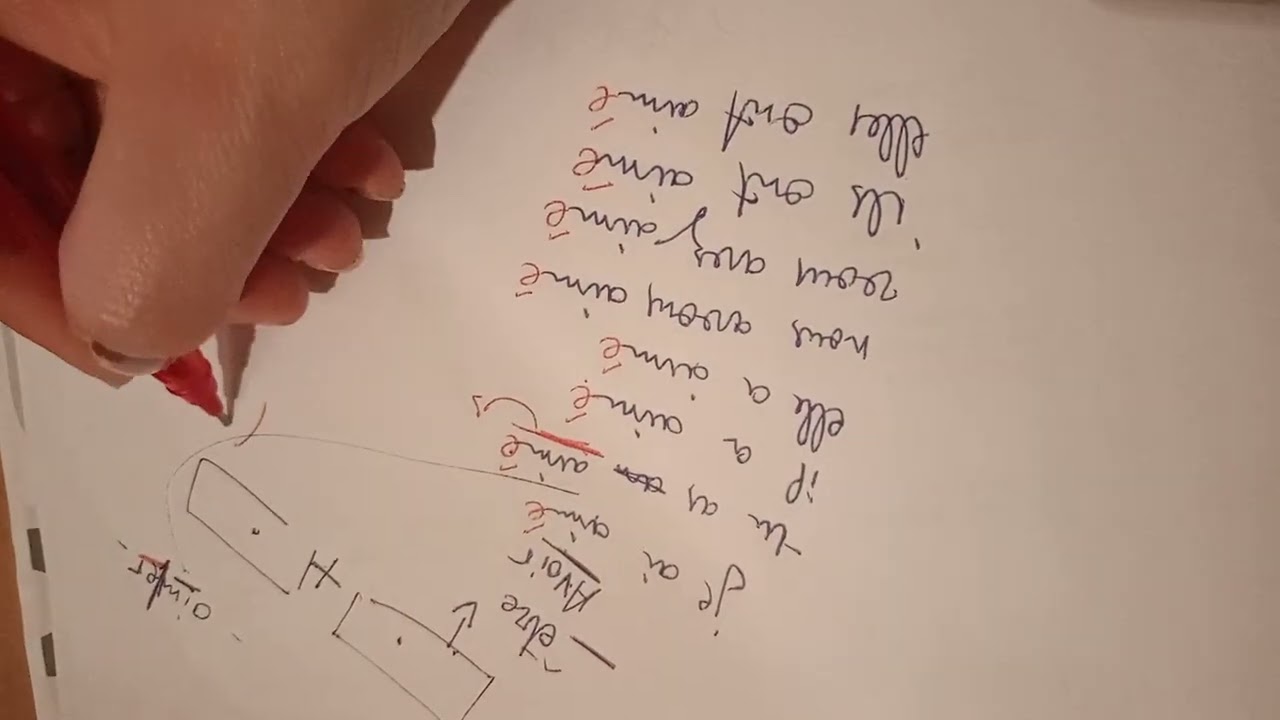 - être
Avoir
aimer
+
Je ai aimé
tu as aimé
il a aimé
elle a aimé
nous avons aimé
vous avez aimé
ils ont aimé
elles ont aimé